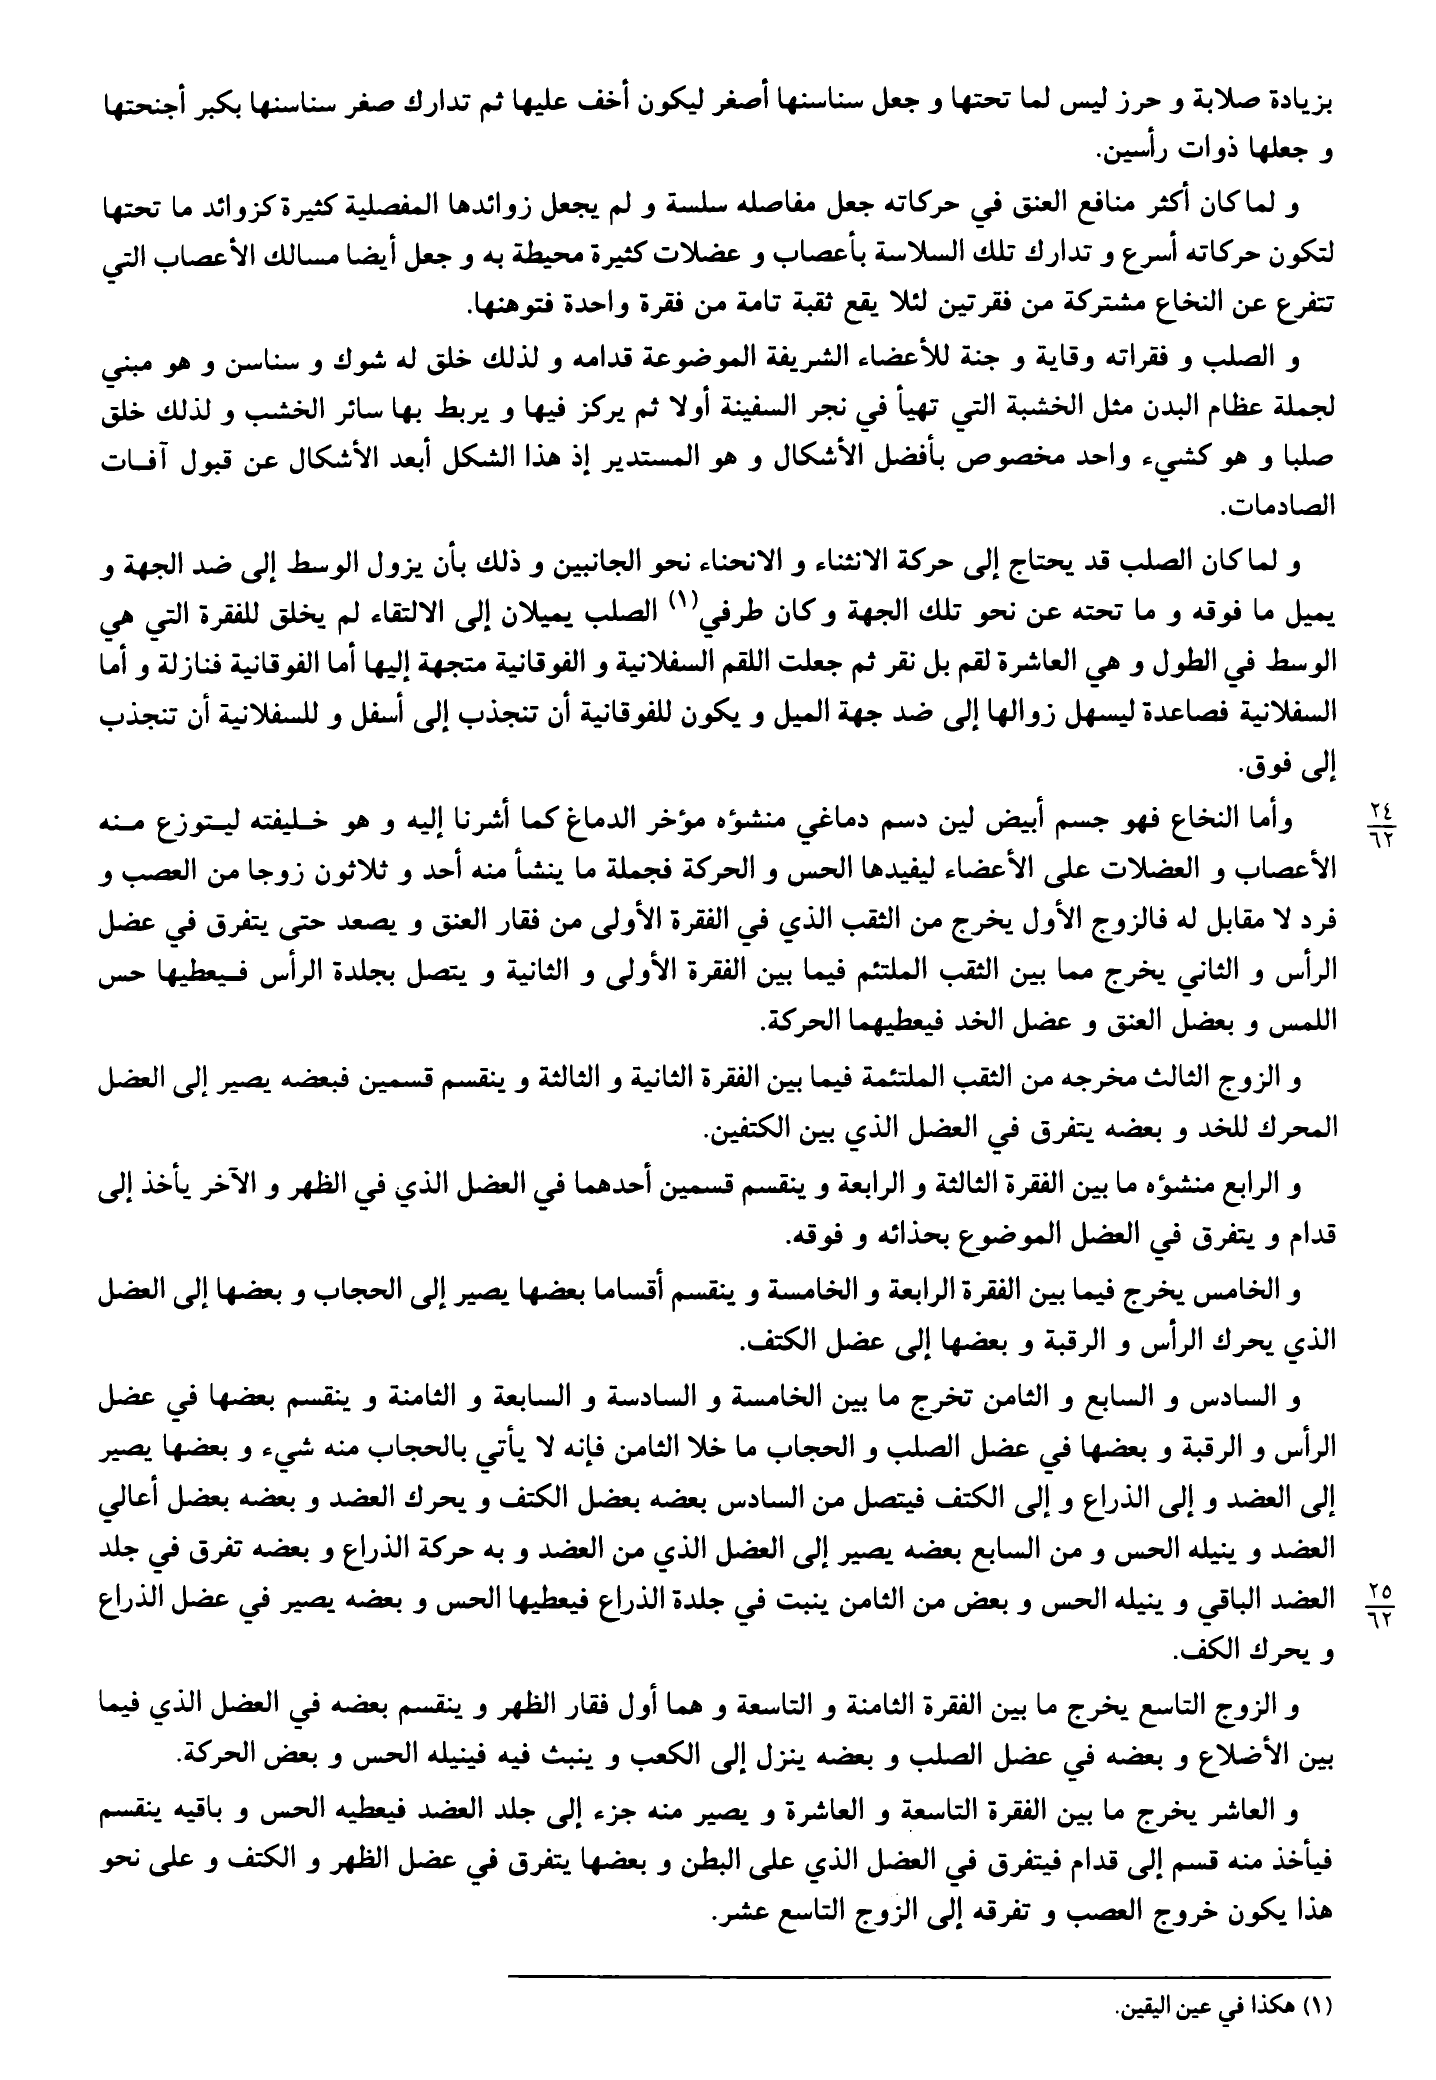 بزيادة صلابة و حرز ليس لما تحتها و جعل سناسنها أصغر ليكون أخف عليها ثم تدارك صغر سناسنها بكبر أجنحتها
و جعلها ذوات رأسين.
و لما كان أكثر منافع العنق في حركاته جعل مفاصله سلسة و لم يجعل زوائدها المفصلية كثيرة كزوائد ما تحتها
لتكون حركاته أسرع و تدارك تلك السلاسة بأعصاب و عضلات كثيرة محيطة به و جعل أيضا مسالك الأعصاب التي
تتفرع عن النخاع مشتركة من فقرتين لئلا يقع ثقبة تامة من فقرة واحدة فتوهنها.
و الصلب و فقراته وقاية و جنة للأعضاء الشريفة الموضوعة قدامه و لذلك خلق له شوك و سناسن و هو مبني
لجملة عظام البدن مثل الخشبة التي تهيأ في نجر السفينة أولا ثم يركز فيها و يربط بها سائر الخشب و لذلك خلق
صلبا و هو كشيء واحد مخصوص بأفضل الأشكال و هو المستدير إذ هذا الشكل أبعد الأشكال عن قبول آفات
الصادمات.
و لما كان الصلب قد يحتاج إلى حركة الانثناء و الانحناء نحو الجانبين و ذلك بأن يزول الوسط إلى ضد الجهة و
يميل ما فوقه و ما تحته عن نحو تلك الجهة و كان طرفي(١) الصلب يميلان إلى الالتقاء لم يخلق للفقرة التي هي
الوسط في الطول و هي العاشرة لقم بل نقر ثم جعلت اللقم السفلانية و الفوقانية متجهة إليها أما الفوقانية فنازلة و أما
السفلانية فصاعدة ليسهل زوالها إلى ضد جهة الميل و يكون للفوقانية أن تنجذب إلى أسفل و للسفلانية أن تنجذب
إلى فوق.
وأما النخاع فهو جسم أبيض لين دسم دماغي منشؤه مؤخر الدماغ كما أشرنا إليه و هو خليفته ليتوزع منه
٢٤
٦٢
الأعصاب و العضلات على الأعضاء ليفيدها الحس و الحركة فجملة ما ينشأ منه أحد و ثلاثون زوجا من العصب و
فرد لا مقابل له فالزوج الأول يخرج من الثقب الذي في الفقرة الأولى من فقار العنق و يصعد حتى يتفرق في عضل
الرأس و الثاني يخرج مما بين الثقب الملتئم فيما بين الفقرة الأولى و الثانية و يتصل بجلدة الرأس فيعطيها حس
اللمس و بعضل العنق و عضل الخد فيعطيهما الحركة.
و الزوج الثالث مخرجه من الثقب الملتئمة فيما بين الفقرة الثانية و الثالثة و ينقسم قسمين فبعضه يصير إلى العضل
المحرك للخد و بعضه يتفرق في العضل الذي بين الكتفين.
و الرابع منشؤه ما بين الفقرة الثالثة و الرابعة و ينقسم قسمين أحدهما في العضل الذي في الظهر و الآخر يأخذ إلى
قدام و يتفرق في العضل الموضوع بحذائه و فوقه.
و الخامس يخرج فيما بين الفقرة الرابعة و الخامسة و ينقسم أقساما بعضها يصير إلى الحجاب و بعضها إلى العضل
الذي يحرك الرأس و الرقبة و بعضها إلى عضل الكتف.
و السادس و السابع و الثامن تخرج ما بين الخامسة و السادسة و السابعة و الثامنة و ينقسم بعضها في عضل
الرأس و الرقبة و بعضها في عضل الصلب و الحجاب ما خلا الثامن فإنه لا يأتي بالحجاب منه شيء و بعضها يصير
إلى العضد و إلى الذراع و إلى الكتف فيتصل من السادس بعضه بعضل الكتف و يحرك العضد و بعضه بعضل أعالي
العضد و ينيله الحس و من السابع بعضه يصير إلى العضل الذي من العضد و به حركة الذراع و بعضه تفرق في جلد
العضد الباقي و ينيله الحس و بعض من الثامن ينبت في جلدة الذراع فيعطيها الحس و بعضه يصير في عضل الذراع
٢٥
٦٢
و يحرك الكف.
و الزوج التاسع يخرج ما بين الفقرة الثامنة و التاسعة و هما أول فقار الظهر و ينقسم بعضه في العضل الذي فيما
بين الأضلاع و بعضه في عضل الصلب و بعضه ينزل إلى الكعب و ينبث فيه فينيله الحس و بعض الحركة.
و العاشر يخرج ما بين الفقرة التاسعة و العاشرة و يصير منه جزء إلى جلد العضد فيعطيه الحس و باقيه ينقسم
فيأخذ منه قسم إلى قدام فيتفرق في العضل الذي على البطن و بعضها يتفرق في عضل الظهر و الكتف و على نحو
هذا يكون خروج العصب و تفرقه إلى الزوج التاسع عشر.
(١) هكذا في عين اليقين.